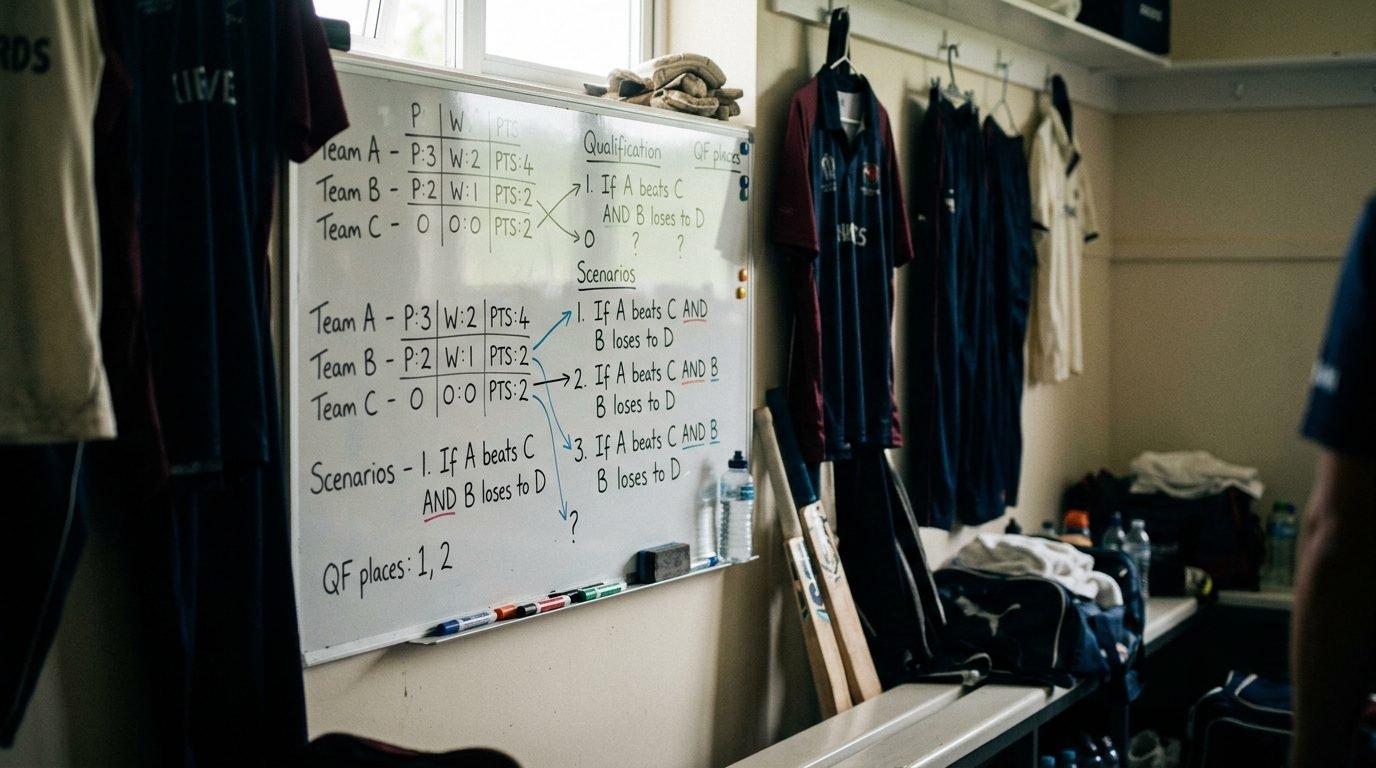 RDS
P W PTS
Team A - P:3 W:2 PTS:4
Team B - P:2 W:1 PTS:2
Team C - 0 0:0 PTS:2
Qualification QF places
1. If A beats C
AND B loses to D
0 ? ?
Scenarios
Team A - P:3 W:2 PTS:4
Team B - P:2 W:1 PTS:2
Team C - 0 0:0 PTS:2
1. If A beats C AND
B loses to D
2. If A beats C AND B
B loses to D
3. If A beats C AND B
B loses to D
?
Scenarios - 1. If A beats C
AND B loses to D
QF places: 1, 2